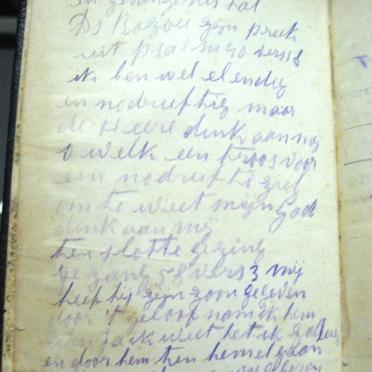 en gevangenis hat
Ds Bazoer zijn preek
uit psalm 40 vers 18
ik ben wel elendig
en nodruftig maar
de Heere denk aan mij
o welk een troos voor
een nodruftig ziel
om te weet mijn God
denk aan mij
ten slotte gezing
gezang 58 vers 3 mij
heef hij zijn zoon gegeven
door 't geloof nam ik hem
aan Ja ik weet het ik
en door hem ten hemel gaan